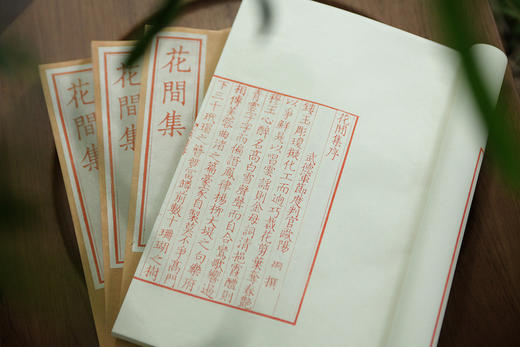 花間集序
武德軍節度判官歐陽 炯 撰
鏤玉雕瓊擬化工而迥巧裁花剪葉奪春艷
以爭鮮是以唱雲謠則金母詞清挹霞醴則
穆王心醉名高白雪聲聲而自合鸞歌響遏
青雲字字而偏諧鳳律楊柳大堤之句樂府
相傳芙蓉曲渚之篇豪家自製莫不爭高門
下三千玳瑁之簪競富罇前數十珊瑚之樹
花間集
花間集
花間集